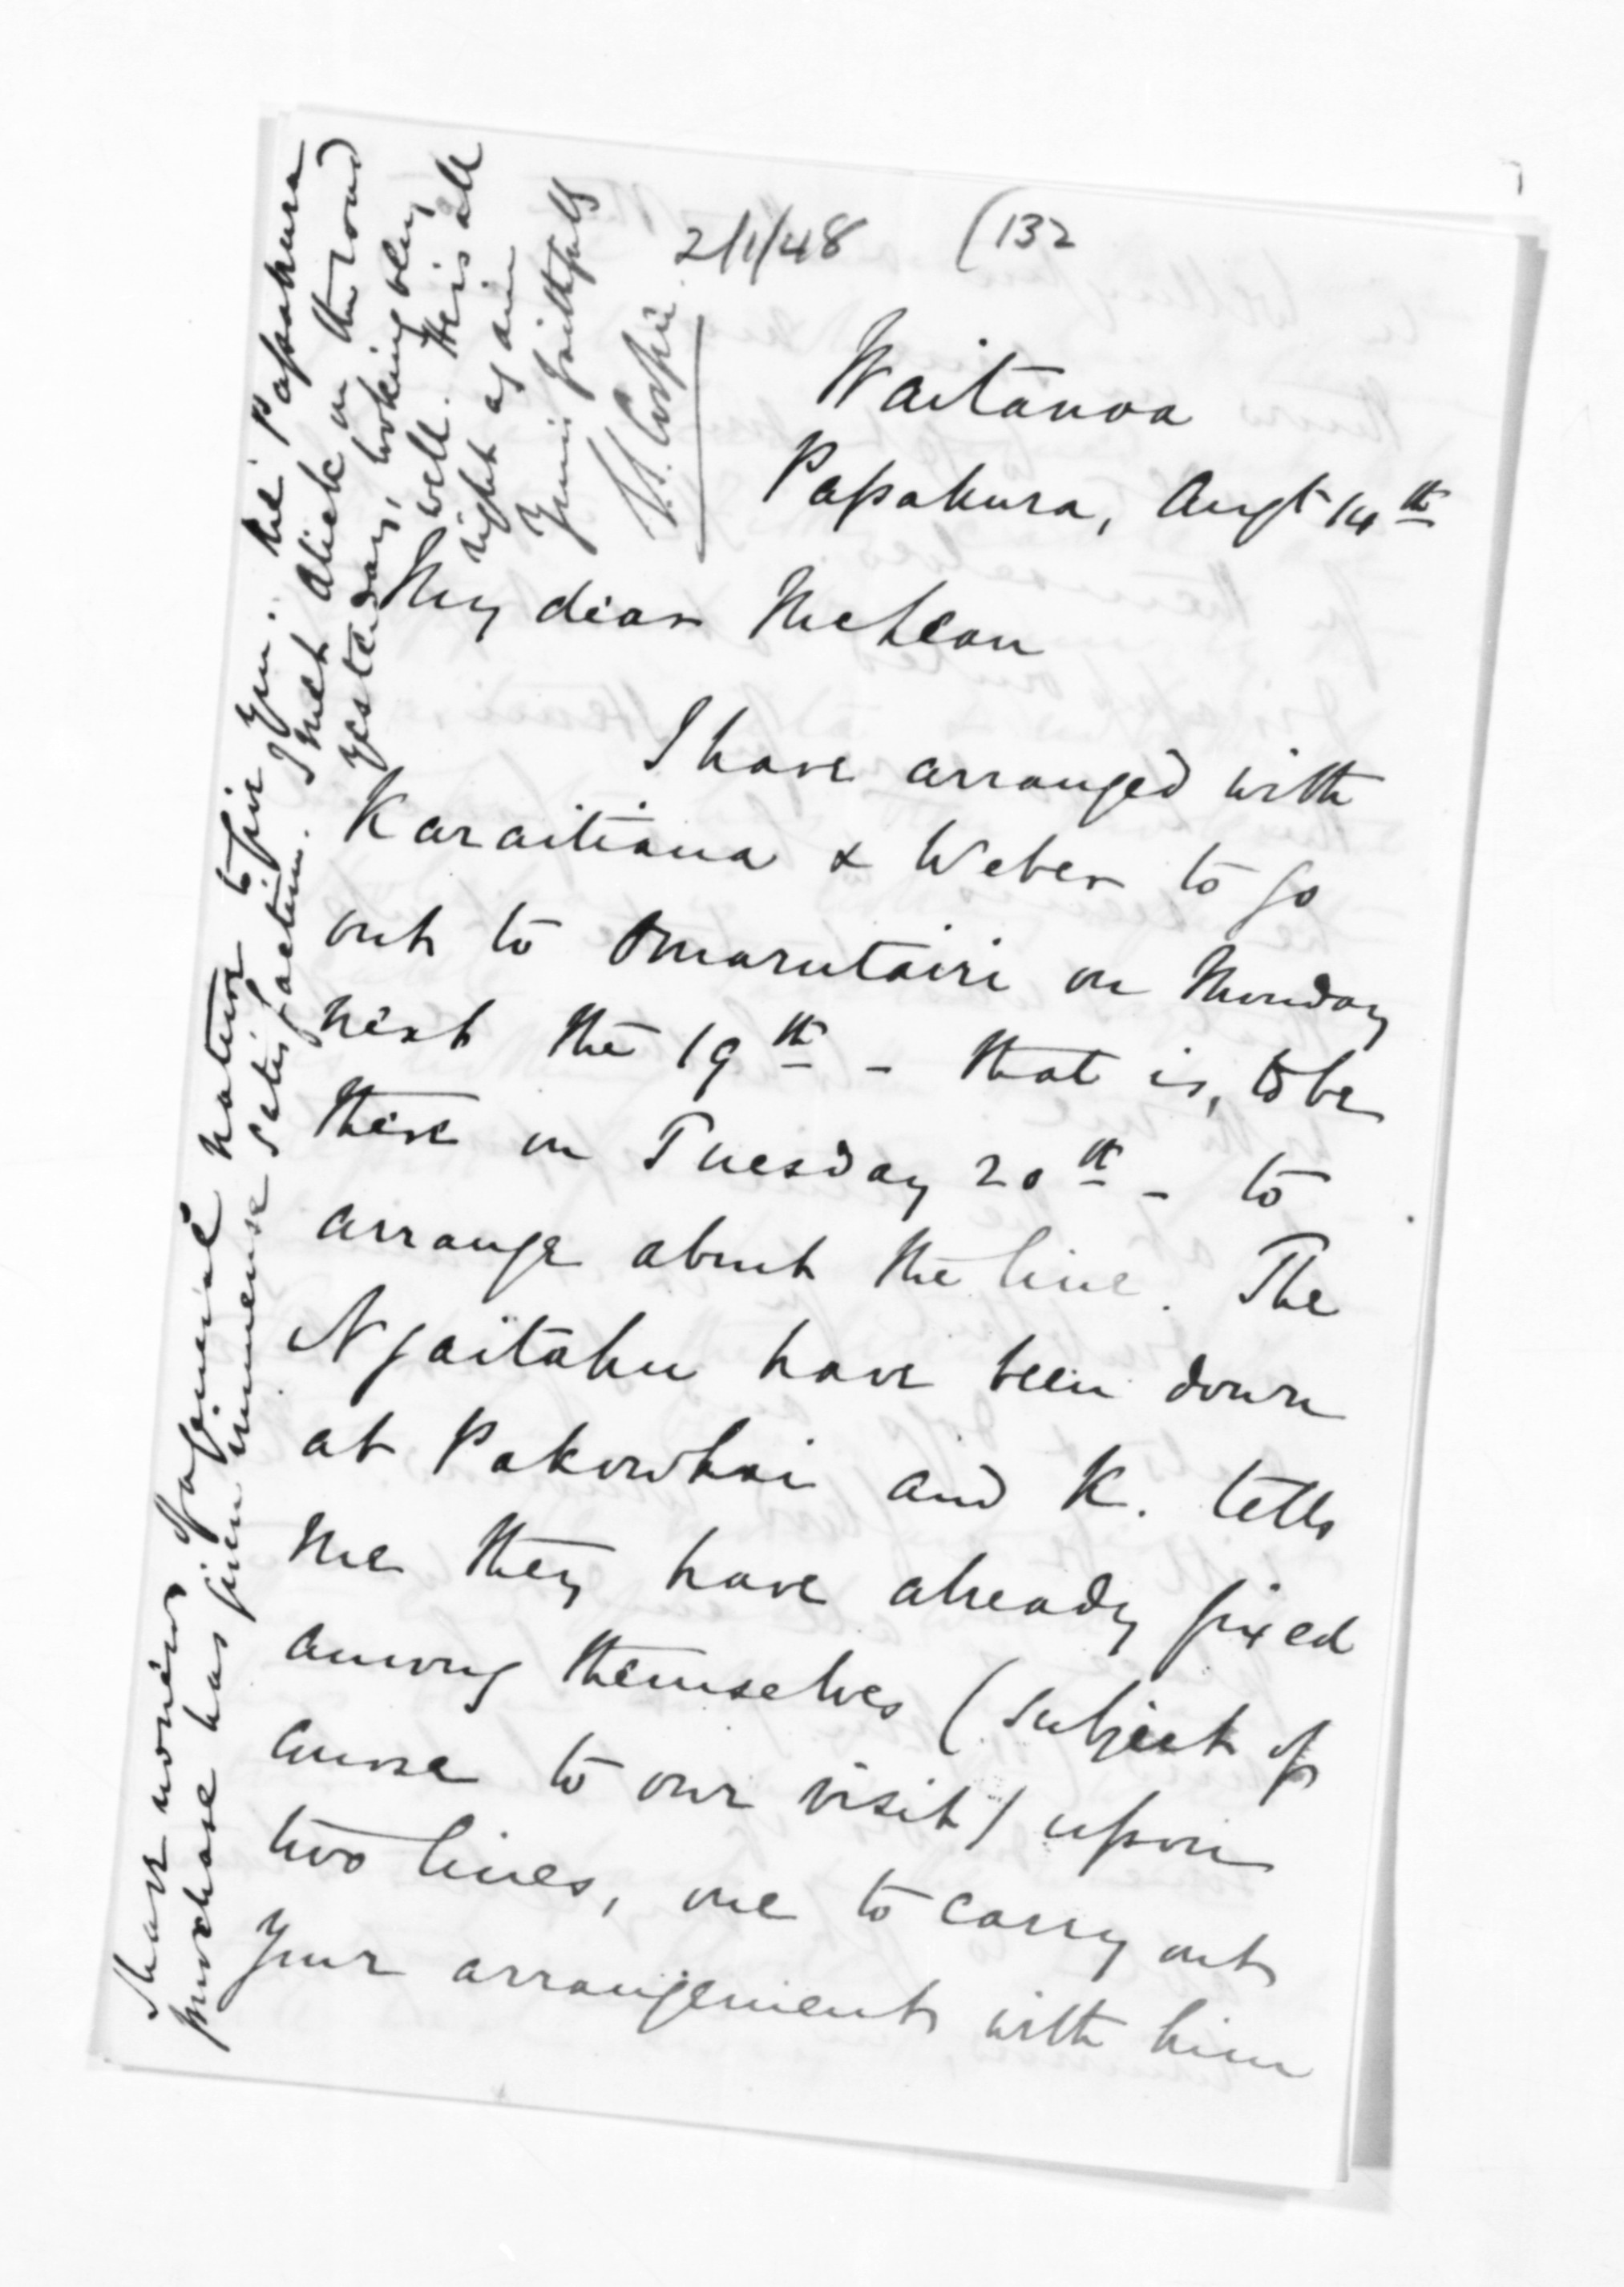 2/1/48 (132
Waitanoa
Papakura, Augt 14th
My dear McLean
I have arranged with
Karaitiana & Weber to go
out to Omarutairi on Monday
next the 19th - that is, to be
there on Tuesday 20th - to
arrange about the line. The
Ngaitahu have been down
at Pakowhai and K. tells
me they have already fixed
among themselves (subject of
course to our visit) upon
two lines, one to carry out
your arrangements with him
I have no news of a general nature to give you. The Papakura
purchase has given immense satisfaction. I met Alick on the road
yesterday, looking very
well. He is all
right again
Yours faithfully